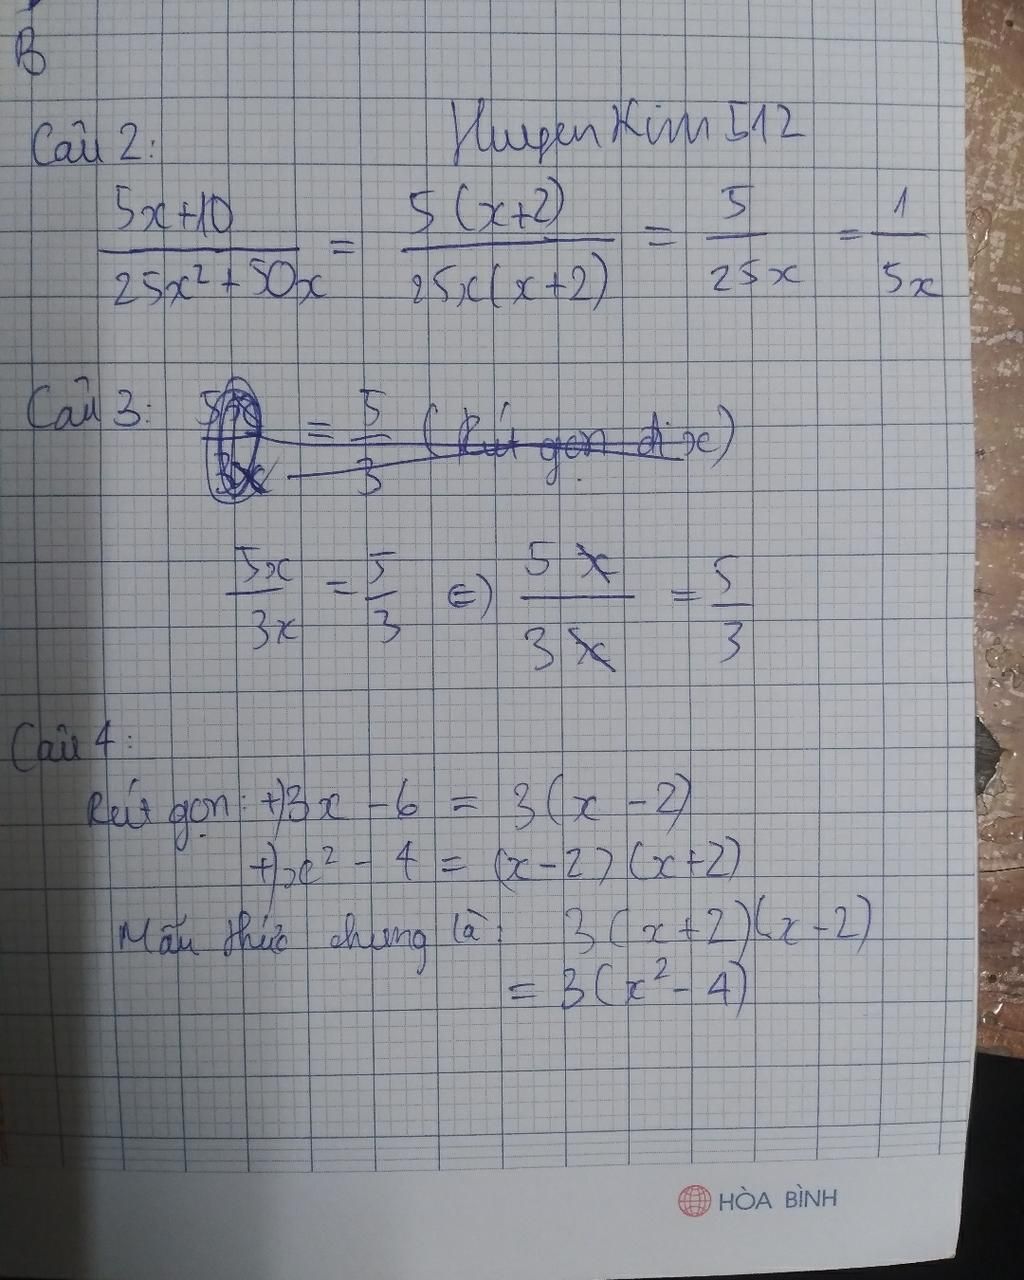 B
Câu 2:
HuyenKim512
5x+10 / 25x²+50x = 5(x+2) / 25x(x+2) = 5 / 25x = 1 / 5x
Câu 3:
= 5 / 3 (Rút gọn đi x)
5x / 3x = 5 / 3 ⇔ 5x / 3x = 5 / 3
Câu 4:
Rút gọn: +) 3x - 6 = 3(x - 2)
+) x² - 4 = (x-2)(x+2)
Mẫu thức chung là: 3(x+2)(x-2)
= 3(x² - 4)
HÒA BÌNH